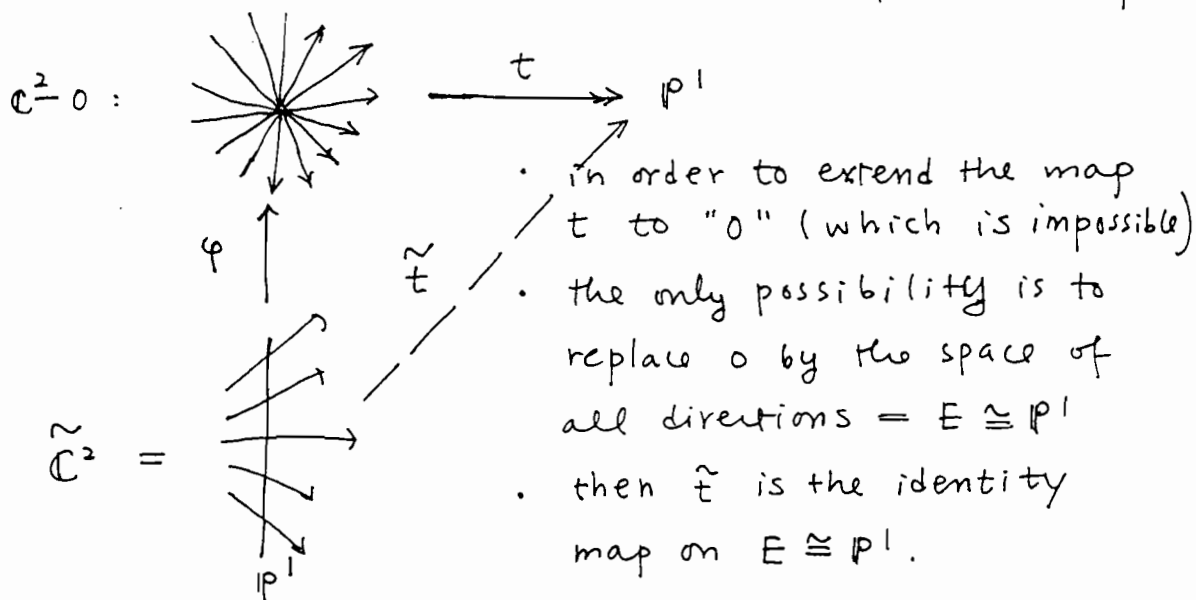 t
ℂ²－0 : ℙ¹
· in order to extend the map
t to "0" (which is impossible)
φ
t̃
· the only possibility is to
replace 0 by the space of
all directions = E ≅ ℙ¹
ℂ̃² =
· then t̃ is the identity
map on E ≅ ℙ¹.
ℙ¹